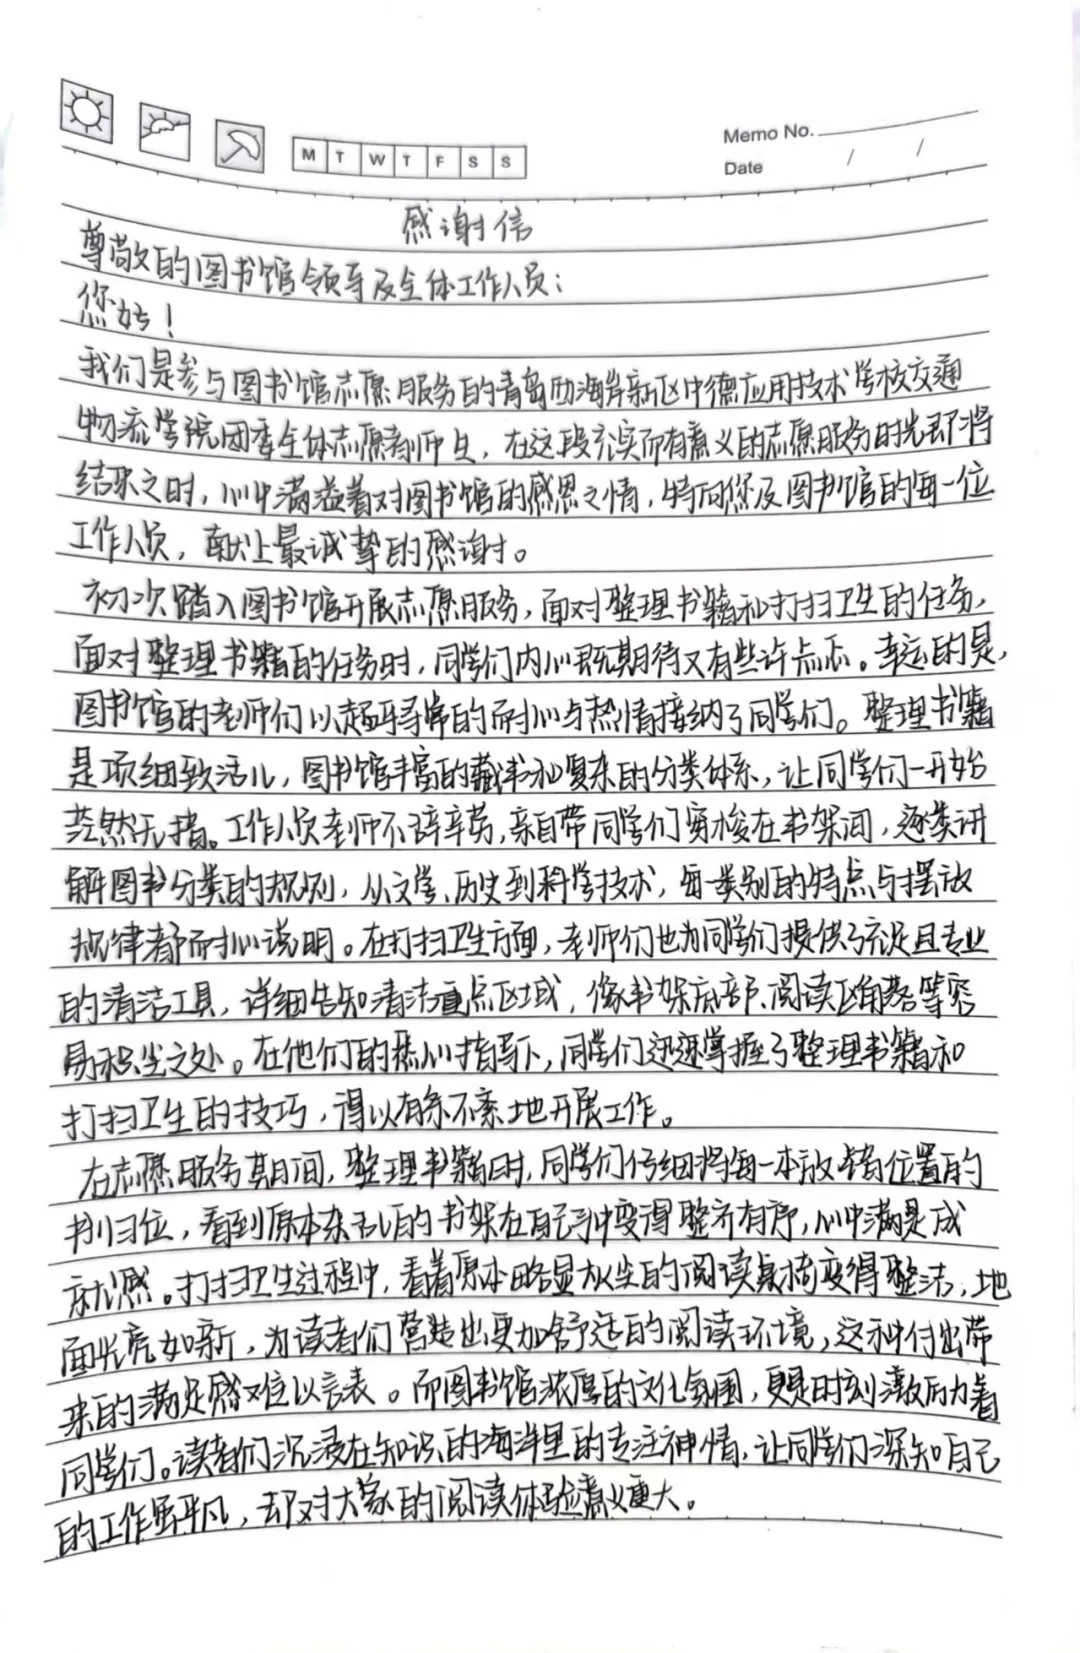 M T W T F S S
Memo No.
Date / /
感谢信
尊敬的图书馆领导及全体工作人员：
您好！
我们是参与图书馆志愿服务的青岛西海岸新区中德应用技术学校交通
物流学院团委全体志愿者师生，在这段充实而有意义的志愿服务时光即将
结束之时，心中满溢着对图书馆的感恩之情，特向您及图书馆的每一位
工作人员，献上最诚挚的感谢。
初次踏入图书馆开展志愿服务，面对整理书籍和打扫卫生的任务，
面对整理书籍的任务时，同学们内心既期待又有些许忐忑。幸运的是，
图书馆的老师们以超乎寻常的耐心与热情接纳了同学们。整理书籍
是项细致活儿，图书馆丰富的藏书和复杂的分类体系，让同学们一开始
茫然无措。工作人员老师不辞辛劳，亲自带同学们穿梭在书架间，逐类讲
解图书分类的规则，从文学、历史到科学技术，每一类别的特点与摆放
规律都耐心说明。在打扫卫生方面，老师们也为同学们提供了充足且专业
的清洁工具，详细告知清洁重点区域，像书架底部、阅读区角落等容
易积尘之处。在他们的悉心指导下，同学们迅速掌握了整理书籍和
打扫卫生的技巧，得以有条不紊地开展工作。
在志愿服务期间，整理书籍时，同学们仔细将每一本放错位置的
书归位，看到原本杂乱的书架在自己手中变得整齐有序，心中满是成
就感。打扫卫生过程中，看着原本略显灰尘的阅读桌椅变得整洁，地
面光亮如新，为读者们营造出更加舒适的阅读环境，这种付出带
来的满足感难以言表。而图书馆浓厚的文化氛围，更是时刻激励着
同学们。读者们沉浸在知识的海洋里的专注神情，让同学们深知自己
的工作虽平凡，却对大家的阅读体验意义重大。